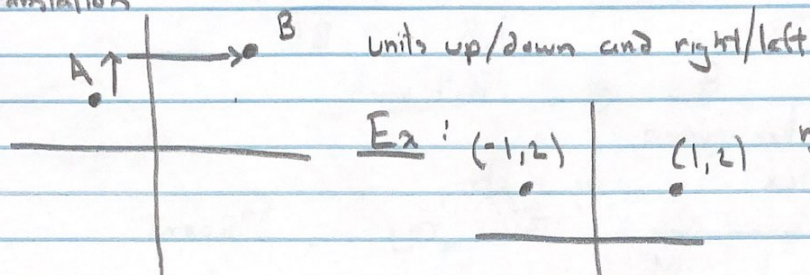 B
units up/down and right/left
A
Ex : (-1,2) (1,2)